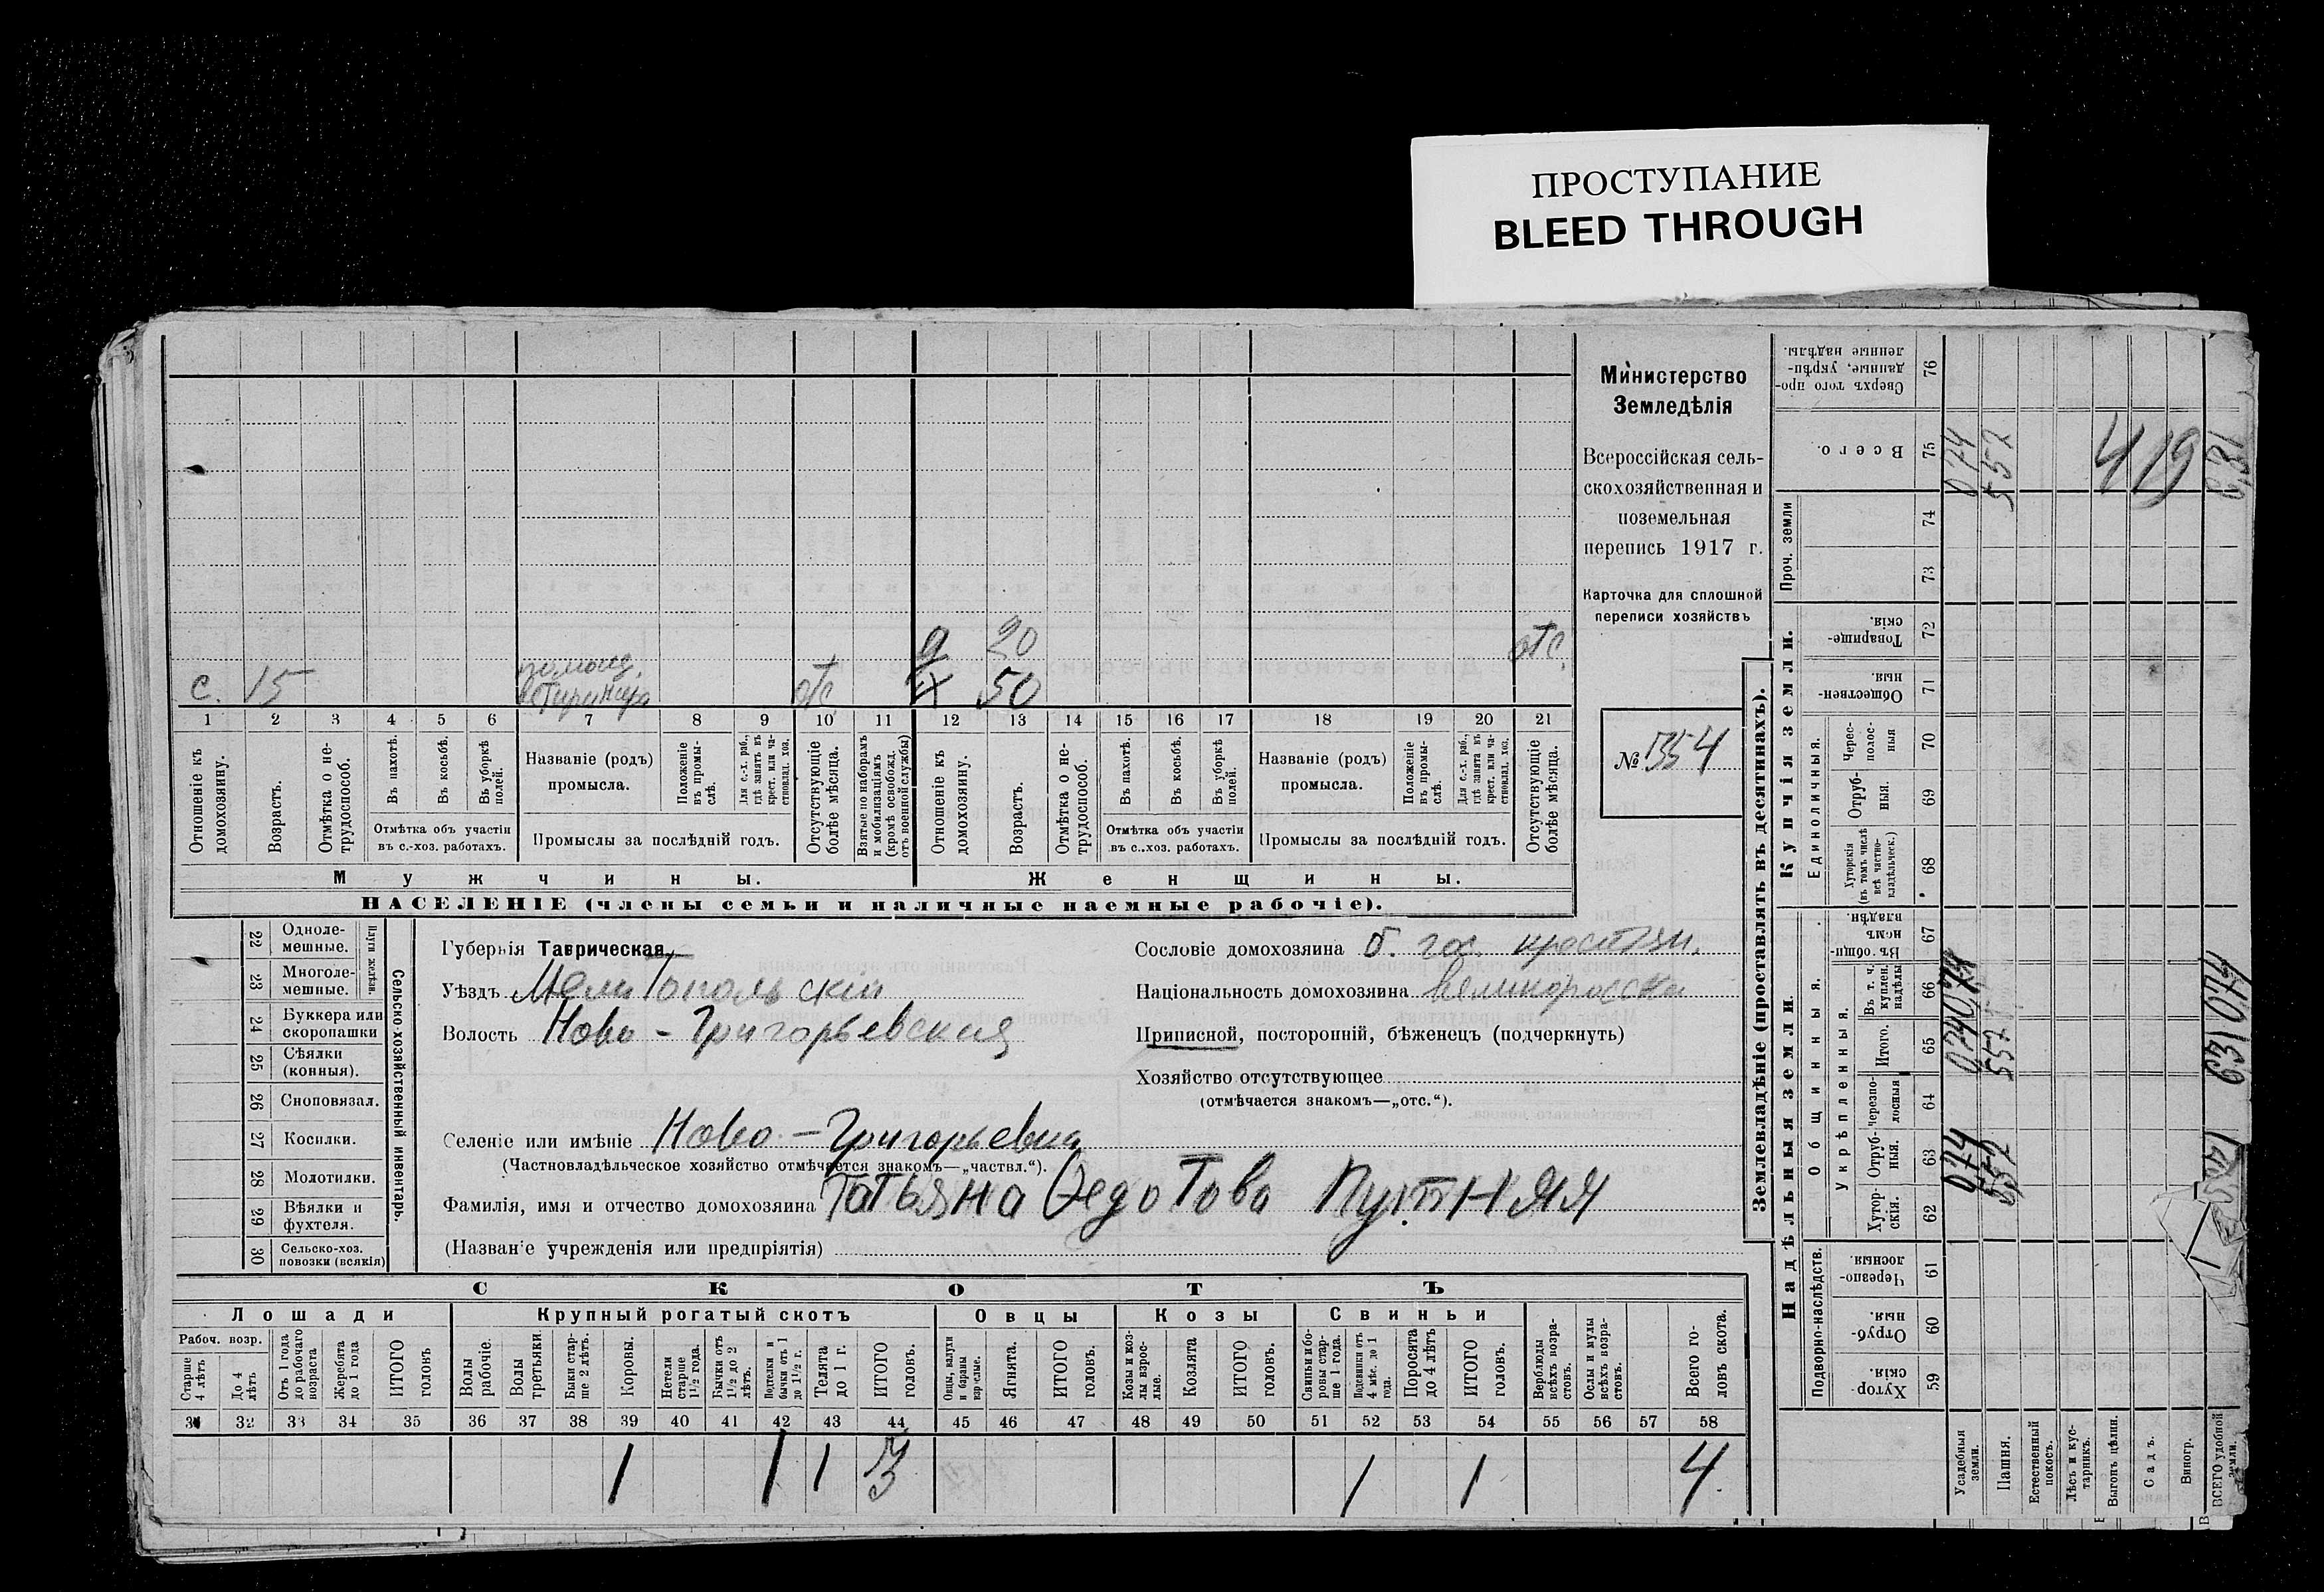 ПРОСТУПАНИЕ
BLEED THROUGH
Министерство
Земледѣлія
Всероссійская сель-
скохозяйственная и
поземельная
перепись 1917 г.
Карточка для сплошной
переписи хозяйствъ
№ 1354
д 20 отс.
помощ.
с. 15 ветеринара отс. х 50
1 2 3 4 5 6 7 8 9 10 11 12 13 14 15 16 17 18 19 20 21
Отношеніе къ домохозяину.
Возрастъ.
Отмѣтка о не-трудоспособ.
Въ пахотѣ.
Въ косьбѣ.
Въ уборкѣ полей.
Отмѣтка объ участіи
въ с.-хоз. работахъ.
Названіе (родъ)
промысла.
Положеніе въ промы-слѣ.
Для с.-х. раб., гдѣ занятъ въ крест. или ча-стновлад. хоз.
Промыслы за послѣдній годъ.
Отсутствующіе болѣе мѣсяца.
Взятые по наборамъ и мобилизаціямъ (кромѣ освобожд. отъ военной службы)
Отношеніе къ домохозяину.
Возрастъ.
Отмѣтка о не-трудоспособ.
Въ пахотѣ.
Въ косьбѣ.
Въ уборкѣ полей.
Отмѣтка объ участіи
въ с..хоз. работахъ.
Названіе (родъ)
промысла.
Положеніе въ промы-слѣ.
Для с.-х. раб., гдѣ занята въ крест. или ча-стновлад. хоз.
Промыслы за послѣдній годъ.
Отсутствующіе болѣе мѣсяца.
Мужчины. Женщины.
НАСЕЛЕНІЕ (члены семьи и наличные наемные рабочіе).
Сельско-хозяйственный инвентарь.
Плуги желѣзн.
22 Одноле-мешные.
23 Многоле-мешные.
24 Буккера или скоропашки
25 Сѣялки (конныя).
26 Сноповязал.
27 Косилки.
28 Молотилки.
29 Вѣялки и фухтеля.
30 Сельско-хоз. повозки (всякія)
Губернія Таврическая.
Уѣздъ Мелитопольскій
Волость Ново-Григорьевская
Селеніе или имѣніе Ново-Григорьевка
(Частновладѣльческое хозяйство отмѣчается знакомъ—„частвл.“).
Фамилія, имя и отчество домохозяина Татьяна Ѳедотова Путня
(Названіе учрежденія или предпріятія)
Сословіе домохозяина б. гос. крестьян.
Національность домохозяина великоросска
Приписной, посторонній, бѣженецъ (подчеркнуть)
Хозяйство отсутствующее
(отмѣчается знакомъ—„отс.“).
СКОТЪ
Лошади
Крупный рогатый скотъ
Овцы
Козы
Свиньи
Рабоч. возр.
Старше 4 лѣтъ
До 4 лѣтъ
Отъ 1 года до рабочаго возраста
Жеребята до 1 года
ИТОГО головъ
Волы рабочіе.
Волы третьяки.
Быки стар-ше 2 лѣтъ.
Коровы.
Нетели старше 1½ года.
Бычки отъ 1½ до 2 лѣтъ.
Подтелки и бычки отъ 1 до 1½ г.
Телята до 1 г.
ИТОГО головъ.
Овцы, валухи и бараны взрослые.
Ягнята.
ИТОГО головъ.
Козы и коз-лы взрос-лые.
Козлята
ИТОГО головъ.
Свиньи и бо-ровы стар-ше 1 года.
Подсвинки отъ 4 мѣс. до 1 года.
Поросята до 4 лѣтъ
ИТОГО головъ.
Верблюды всѣхъ возра-стовъ.
Ослы и мулы всѣхъ возра-стовъ.
Всего го-ловъ скота.
31 32 33 34 35 36 37 38 39 40 41 42 43 44 45 46 47 48 49 50 51 52 53 54 55 56 57 58
1 1 1 3 1 1 4
Землевладѣніе (проставлять въ десятинахъ).
Надѣльныя земли.
Купчія земли.
Проч. земли
Подворно-наслѣдств.
Общинныя.
Укрѣпленныя.
Единоличныя.
Хутор-скія 59
Отруб-ныя. 60
Черезпо-лосныя. 61
Хутор-скія. 62
Отруб-ныя. 63
черезпо-лосныя 64
Итого. 65
Въ т. ч. куплен. надѣлы 66
Въ общи-номъ владѣн. 67
Хуторскія (въ томъ числѣ всѣ частно-владѣльческ.) 68
Отруб-ныя. 69
Черес-полос-ныя 70
Обществен-ныя. 71
Товарище-скія. 72
73
74
Всего. 75
Сверхъ того про-данные, укрѣп-ленные надѣлы. 76
Усадебныя земли. 074 074 074
Пашня. 552 552 552
Естественный покосъ.
Лѣсъ и кус-тарникъ.
Выгонъ цѣлин.
Садъ.
Виногр.
ВСЕГО удобной земли.
419